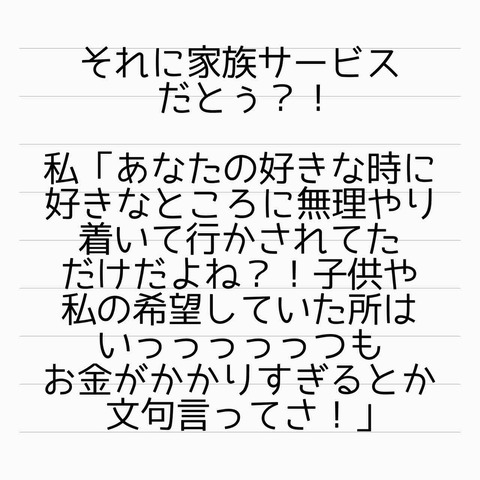 それに家族サービス
だとぅ？！
私「あなたの好きな時に
好きなところに無理やり
着いて行かされてた
だけだよね？！子供や
私の希望していた所は
いっっっっっっつも
お金がかかりすぎるとか
文句言ってさ！」